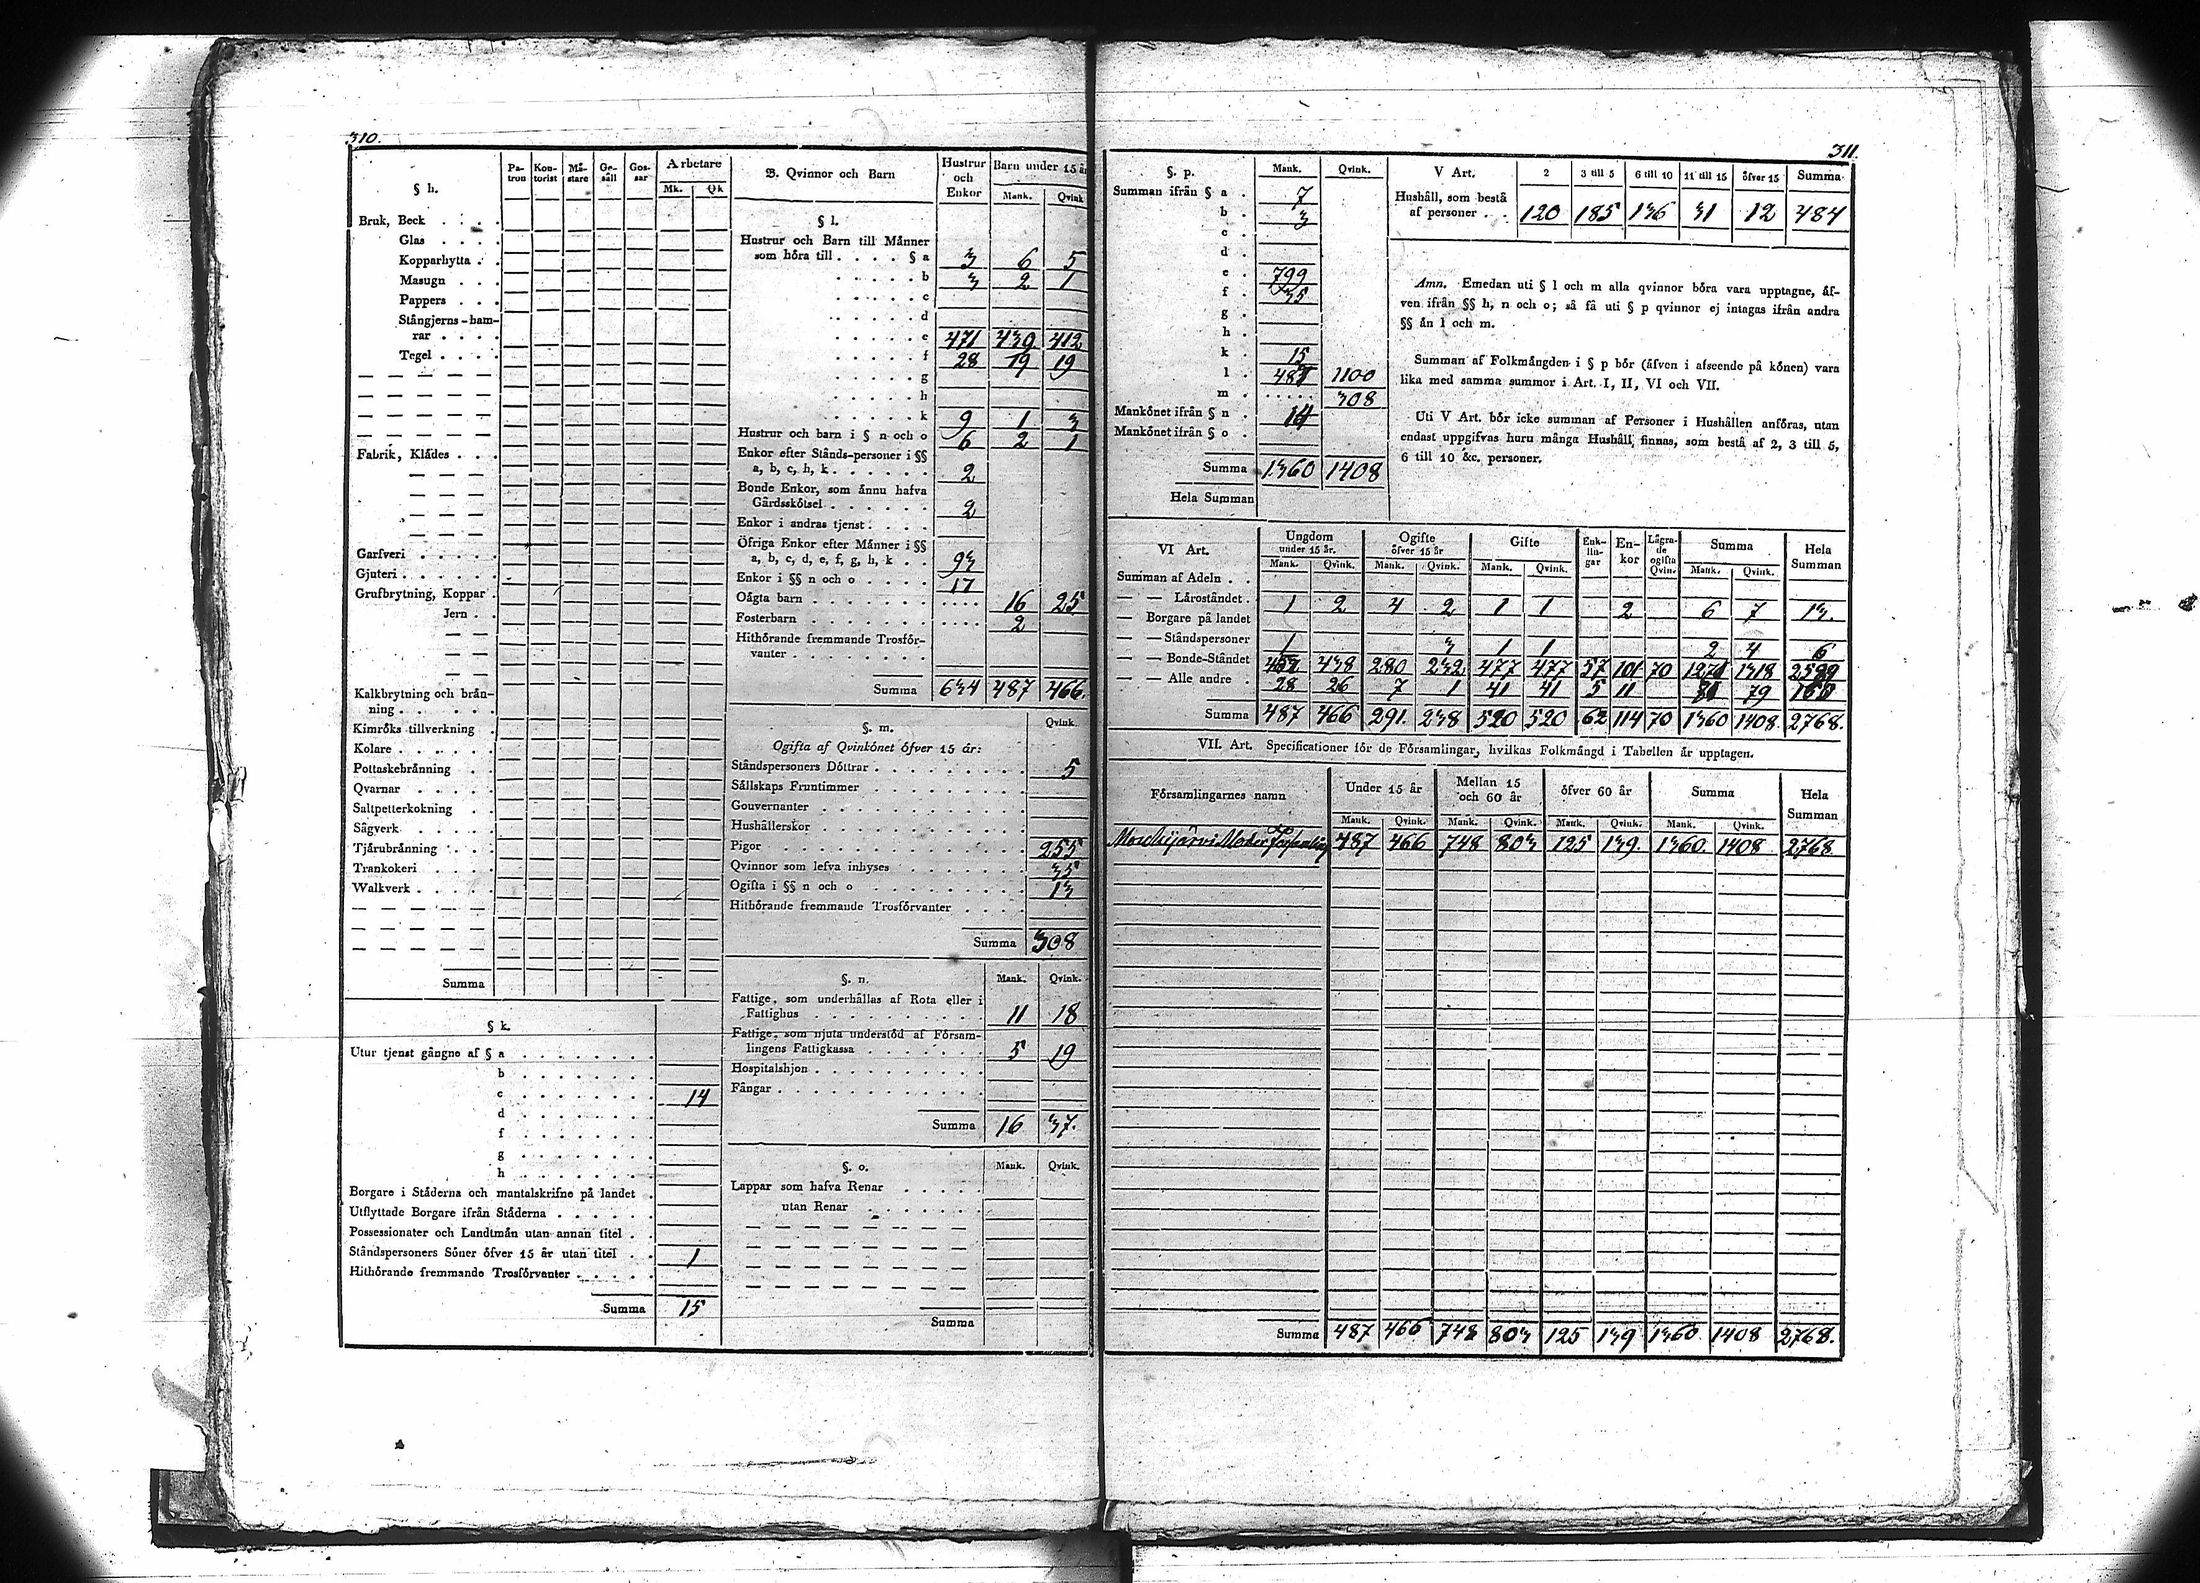 310.
§ h.
Pa-tron Kon-torist Mä-stare Ge-säll Gos-sar Arbetare
Mk. Qk
Bruk, Beck . . . .
Glas . . . .
Kopparhytta . .
Masugn . . .
Pappers . . .
Stångjerns-ham-
rar . . . .
Tegel . . . .
Fabrik, Klädes . . .
Garfveri . . . . .
Gjuteri . . . . . .
Grufbrytning, Koppar .
Jern . .
Kalkbrytning och brän-
ning . . . . . .
Kimröks tillverkning .
Kolare . . . . . .
Pottaskebränning . .
Qvarnar . . . . .
Saltpetterkokning . .
Sågverk . . . . .
Tjärubränning . . .
Trankokeri . . . .
Walkverk . . . . .
Summa
§ k.
Utur tjenst gångne af § a . . . . . . . .
b . . . . . . . .
c . . . . . . . . 14
d . . . . . . . .
f . . . . . . . .
g . . . . . . . .
h . . . . . . . .
Borgare i Städerna och mantalskrifne på landet .
Utflyttade Borgare ifrån Städerna . . . . . .
Possessionater och Landtmän utan annan titel . .
Ståndspersoners Söner öfver 15 år utan titel . . 1
Hithörande fremmande Trosförvanter . . . . .
Summa 15
B. Qvinnor och Barn
Hustrur och Enkor Barn under 15 år
Mank. Qvink
§ l.
Hustrur och Barn till Männer
som höra till . . . . § a 3 6 5
. . . . . b 3 2 1
. . . . . c
. . . . . d
. . . . . e 471 439 412
. . . . . f 28 19 19
. . . . . g
. . . . . h
. . . . . k 9 1 3
Hustrur och barn i § n och o 6 2 1
Enkor efter Stånds-personer i §§
a, b, c, h, k . . . . . . 2
Bonde Enkor, som ännu hafva
Gårdsskötsel . . . . . . 2
Enkor i andras tjenst . . . .
Öfriga Enkor efter Männer i §§
a, b, c, d, e, f, g, h, k . . 93
Enkor i §§ n och o . . . . . 17
Oägta barn . . . . . . . . . . . . 16 25
Fosterbarn . . . . . . . . . . . . 2
Hithörande fremmande Trosför-
vanter . . . . . . . . .
Summa 634 487 466.
§. m. Qvink.
Ogifta af Qvinkönet öfver 15 år:
Ståndspersoners Döttrar . . . . . . . . . 5
Sällskaps Fruntimmer . . . . . . . . . .
Gouvernanter . . . . . . . . . . .
Hushållerskor . . . . . . . . . . .
Pigor . . . . . . . . . . . . . 255
Qvinnor som lefva inhyses . . . . . . . . 35
Ogifta i §§ n och o . . . . . . . . . 13
Hithörande fremmande Trosförvanter . . . .
Summa 308
§. n. Mank. Qvink.
Fattige, som underhållas af Rota eller i
Fattighus . . . . . . . . . . 11 18
Fattige, som njuta understöd af Försam-
lingens Fattigkassa . . . . . . . 5 19
Hospitalshjon . . . . . . . . . . .
Fångar . . . . . . . . . . . . .
Summa 16 37.
§. o. Mank. Qvink.
Lappar som hafva Renar . . . . .
utan Renar . . . . . .
Summa
311.
§. p. Mank. Qvink.
Summan ifrån § a . 7
b . 3
c .
d .
e . 799
f . 35
g .
h .
k . 15
l . 487 1100
m . . . . . . 308
Mankönet ifrån § n . 14
Mankönet ifrån § o .
Summa 1360 1408
Hela Summan
V Art. 2 3 till 5 6 till 10 11 till 15 öfver 15 Summa
Hushåll, som bestå
af personer . . 120 185 136 31 12 484
Amn. Emedan uti § l och m alla qvinnor böra vara upptagne, äf-
ven ifrån §§ h, n och o; så få uti § p qvinnor ej intagas ifrån andra
§§ än l och m.
Summan af Folkmängden i § p bör (äfven i afseende på könen) vara
lika med samma summor i Art. I, II, VI och VII.
Uti V Art. bör icke summan af Personer i Hushållen anföras, utan
endast uppgifvas huru många Hushåll finnas, som bestå af 2, 3 till 5,
6 till 10 &c. personer.
VI Art. Ungdom under 15 år. Ogifte öfver 15 år Gifte Enk-lin-gar En-kor Lägra-de ogifta Qvin. Summa Hela Summan
Mank. Qvink. Mank. Qvink. Mank. Qvink. Mank. Qvink.
Summan af Adeln . .
— — Läroståndet . 1 2 4 2 1 1 2 6 7 13.
— Borgare på landet
— — Ståndspersoner 1 3 1 1 2 4 6
— — Bonde-Ståndet 457 438 280 232 477 477 57 101 70 1271 1318 2589
— — Alle andre . 28 26 7 1 41 41 5 11 81 79 160
Summa 487 466 291. 238 520 520 62 114 70 1360 1408 2768.
VII. Art. Specificationer för de Församlingar, hvilkas Folkmängd i Tabellen är upptagen.
Församlingarnes namn Under 15 år Mellan 15 och 60 år öfver 60 år Summa Hela Summan
Mank. Qvink. Mank. Qvink. Mank. Qvink. Mank. Qvink.
Mouhijärvi Moder Församling 487 466 748 803 125 139. 1360. 1408 2768
Summa 487 466 748 803 125 139 1360 1408 2768.